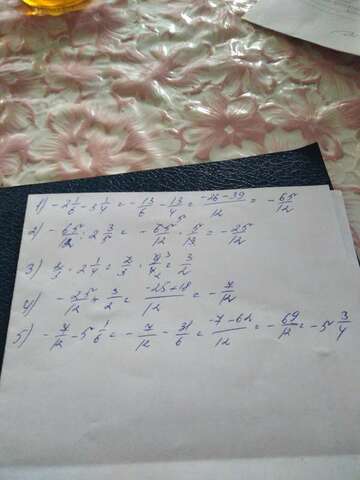 1) -2 1/6 - 3 1/4 = -13/6 - 13/4 = (-26-39)/12 = -65/12
2) -65/12 : 2 3/5 = -65/12 · 5/13 = -25/12
3) 2/3 · 2 1/4 = 2/3 · 9/4 = 3/2
4) -25/12 + 3/2 = (-25+18)/12 = -7/12
5) -7/12 - 5 1/6 = -7/12 - 31/6 = (-7-62)/12 = -69/12 = -5 3/4